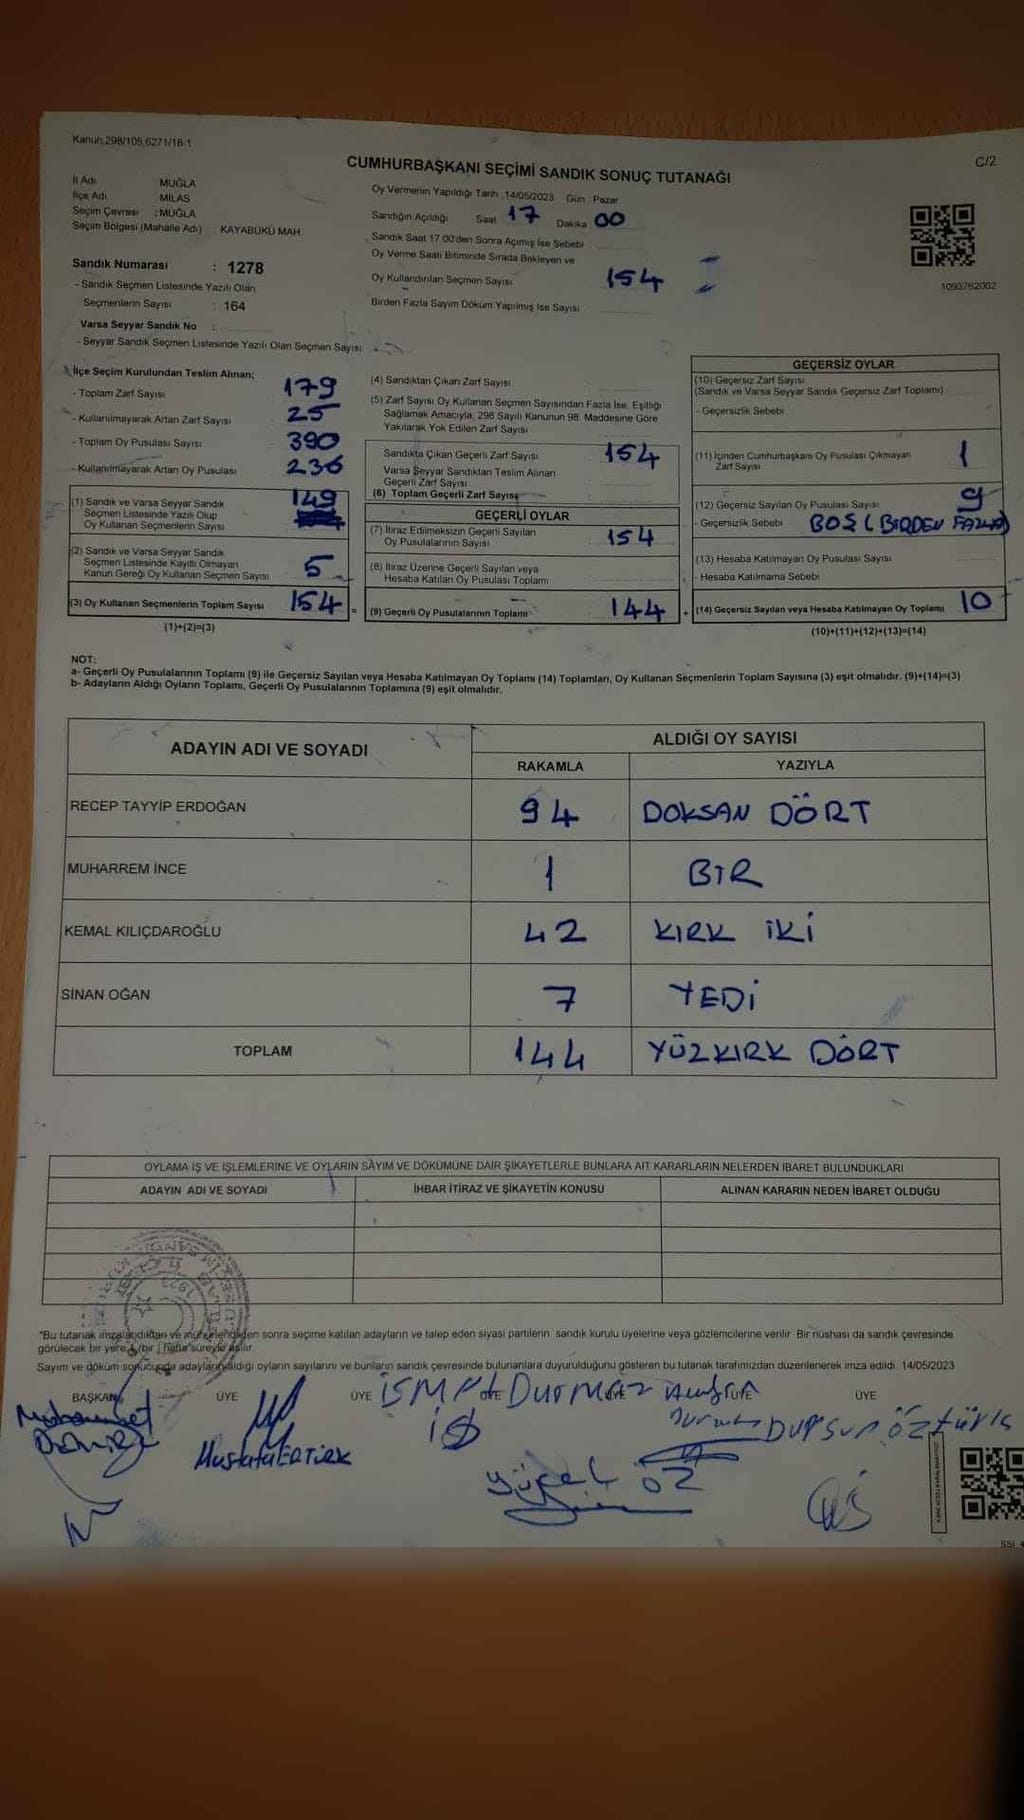 Kanun:298/105,6271/18-1
C/2
CUMHURBAŞKANI SEÇİMİ SANDIK SONUÇ TUTANAĞI
İl Adı MUĞLA
İlçe Adı MİLAS
Seçim Çevresi : MUĞLA
Seçim Bölgesi (Mahalle Adı) KAYABÜKÜ MAH.
Sandık Numarası : 1278
- Sandık Seçmen Listesinde Yazılı Olan
Seçmenlerin Sayısı : 164
Varsa Seyyar Sandık No :
- Seyyar Sandık Seçmen Listesinde Yazılı Olan Seçmen Sayısı:
Oy Vermenin Yapıldığı Tarih : 14/05/2023 Gün : Pazar
Sandığın Açıldığı Saat 17 Dakika 00
Sandık Saat 17:00'den Sonra Açımış İse Sebebi
Oy Verme Saati Bitiminde Sırada Bekleyen ve
Oy Kullandırılan Seçmen Sayısı 154
Birden Fazla Sayım Döküm Yapılmış İse Sayısı
1093762002
İlçe Seçim Kurulundan Teslim Alınan;
- Toplam Zarf Sayısı 179
- Kullanılmayarak Artan Zarf Sayısı 25
- Toplam Oy Pusulası Sayısı 390
- Kullanılmayarak Artan Oy Pusulası 236
(1) Sandık ve Varsa Seyyar Sandık
Seçmen Listesinde Yazılı Olup
Oy Kullanan Seçmenlerin Sayısı 149
(2) Sandık ve Varsa Seyyar Sandık
Seçmen Listesinde Kayıtlı Olmayan
Kanun Gereği Oy Kullanan Seçmen Sayısı 5
(3) Oy Kullanan Seçmenlerin Toplam Sayısı 154 =
(1)+(2)=(3)
(4) Sandıktan Çıkan Zarf Sayısı
(5) Zarf Sayısı Oy Kullanan Seçmen Sayısından Fazla İse, Eşitliği
Sağlamak Amacıyla, 298 Sayılı Kanunun 98. Maddesine Göre
Yakılarak Yok Edilen Zarf Sayısı
Sandıkta Çıkan Geçerli Zarf Sayısı 154
Varsa Seyyar Sandıktan Teslim Alınan
Geçerli Zarf Sayısı
(6) Toplam Geçerli Zarf Sayısı
GEÇERLİ OYLAR
(7) İtiraz Edilmeksizin Geçerli Sayılan
Oy Pusulalarının Sayısı 154
(8) İtiraz Üzerine Geçerli Sayılan veya
Hesaba Katılan Oy Pusulası Toplamı
(9) Geçerli Oy Pusulalarının Toplamı 144 +
GEÇERSİZ OYLAR
(10) Geçersiz Zarf Sayısı
(Sandık ve Varsa Seyyar Sandık Geçersiz Zarf Toplamı)
- Geçersizlik Sebebi
(11) İçinden Cumhurbaşkanı Oy Pusulası Çıkmayan
Zarf Sayısı 1
(12) Geçersiz Sayılan Oy Pusulası Sayısı 9
- Geçersizlik Sebebi BOŞ (BİRDEN FAZLA)
(13) Hesaba Katılmayan Oy Pusulası Sayısı
- Hesaba Katılmama Sebebi
(14) Geçersiz Sayılan veya Hesaba Katılmayan Oy Toplamı 10
(10)+(11)+(12)+(13)=(14)
NOT:
a- Geçerli Oy Pusulalarının Toplamı (9) ile Geçersiz Sayılan veya Hesaba Katılmayan Oy Toplamı (14) Toplamları, Oy Kullanan Seçmenlerin Toplam Sayısına (3) eşit olmalıdır. (9)+(14)=(3)
b- Adayların Aldığı Oyların Toplamı, Geçerli Oy Pusulalarının Toplamına (9) eşit olmalıdır.
ADAYIN ADI VE SOYADI
ALDIĞI OY SAYISI
RAKAMLA YAZIYLA
RECEP TAYYİP ERDOĞAN 94 DOKSAN DÖRT
MUHARREM İNCE 1 BİR
KEMAL KILIÇDAROĞLU 42 KIRK İKİ
SİNAN OĞAN 7 YEDİ
TOPLAM 144 YÜZKIRK DÖRT
OYLAMA İŞ VE İŞLEMLERİNE VE OYLARIN SAYIM VE DÖKÜMÜNE DAİR ŞİKAYETLERLE BUNLARA AİT KARARLARIN NELERDEN İBARET BULUNDUKLARI
ADAYIN ADI VE SOYADI İHBAR İTİRAZ VE ŞİKAYETİN KONUSU ALINAN KARARIN NEDEN İBARET OLDUĞU
"Bu tutanak imzalandıktan ve mühürlendikten sonra seçime katılan adayların ve talep eden siyasi partilerin sandık kurulu üyelerine veya gözlemcilerine verilir. Bir nüshası da sandık çevresinde
görülecek bir yere 1 (bir ) hafta süreyle asılır
Sayım ve döküm sonucunda adayların aldığı oyların sayılarını ve bunların sandık çevresinde bulunanlara duyurulduğunu gösteren bu tutanak tarafımızdan düzenlenerek imza edildi. 14/05/2023
BAŞKAN ÜYE ÜYE ÜYE ÜYE ÜYE ÜYE
İSMAİL Durmaz
Mustafa ERTÜRK
Dursun Öztürk
yücel ÖZ